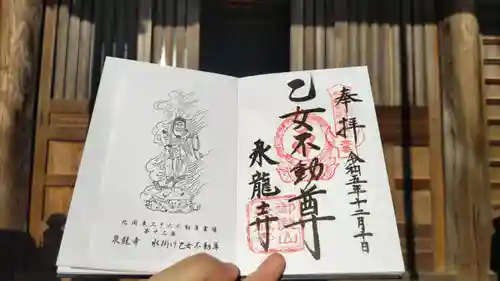 奉拝
令和五年十二月十日
乙女不動尊
泉龍寺
北関東三十六不動尊霊場
第十三番
泉龍寺 水掛け乙女不動尊